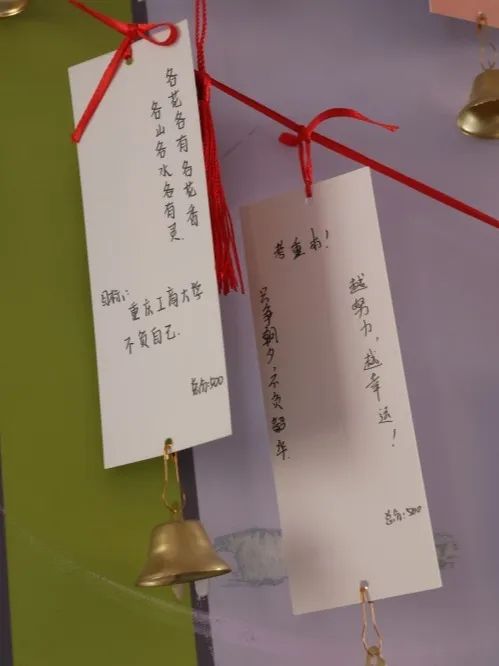 各花各有各花香
各山各水各有灵.
目标:
重庆工商大学
不负自己.
总分:500
考重本!
越努力,越幸运!
只争朝夕,不负韶华
总分:500